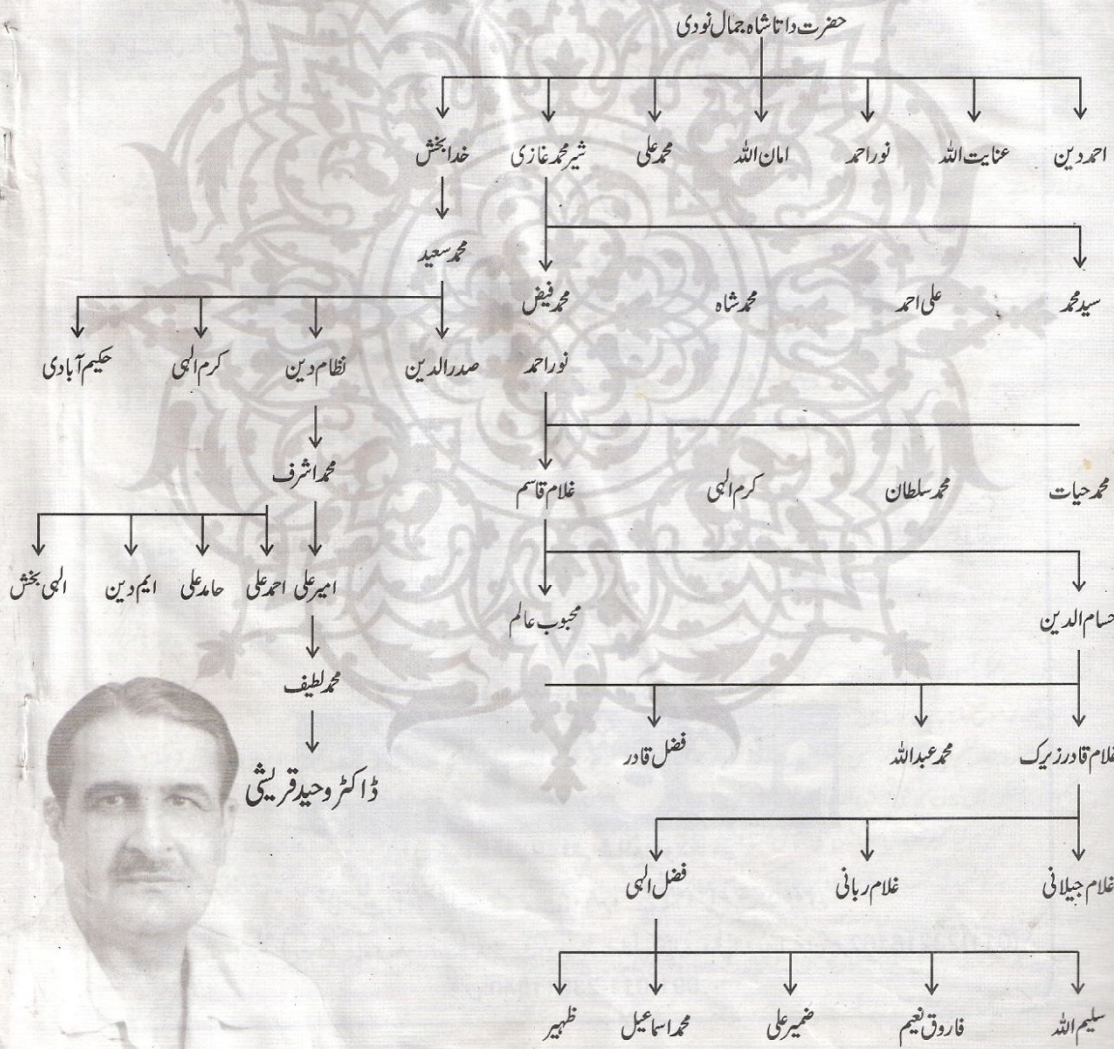 حضرت داتا شاہ جمال نودی
احمد دین عنایت اللہ نور احمد امان اللہ محمد علی شیر محمد غازی خدا بخش
محمد سعید
سید محمد علی احمد محمد شاہ محمد فیض
نور احمد صدر الدین نظام دین کرم الہی حکیم آبادی
محمد حیات محمد سلطان کرم الہی غلام قاسم محمد اشرف
امیر علی احمد علی حامد علی ایم دین الہی بخش
حسام الدین محبوب عالم
محمد لطیف
غلام قادر زیرک محمد عبداللہ فضل قادر
ڈاکٹر وحید قریشی
غلام جیلانی غلام ربانی فضل الہی
سلیم اللہ فاروق نعیم ضمیر علی محمد اسماعیل ظہیر